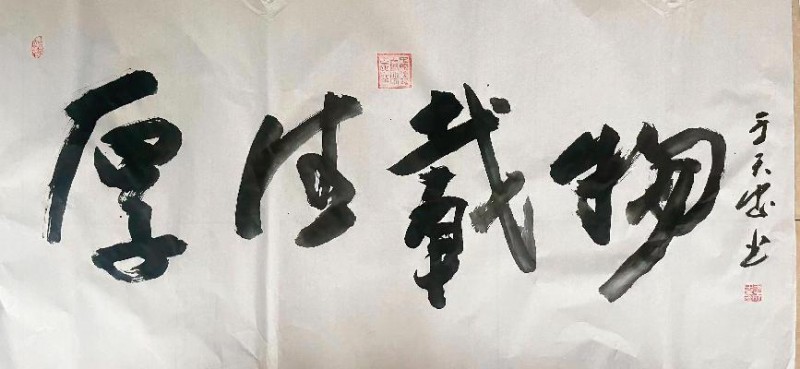 厚德载物
于天忠书